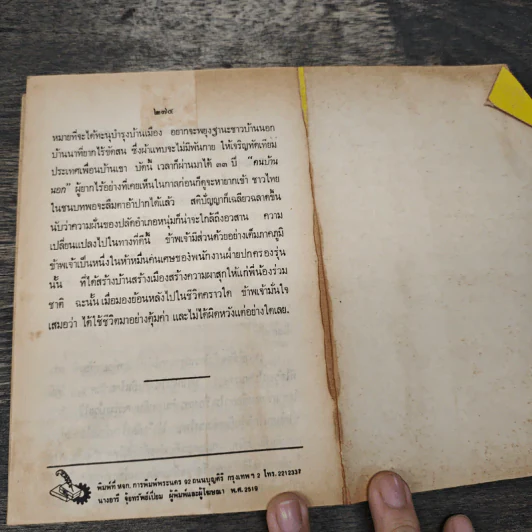 ๒๗๔
หมายที่จะได้ทะนุบำรุงบ้านเมือง อยากจะพยุงฐานะชาวบ้านนอก
บ้านนาที่ยากไร้ขัดสน ซึ่งผ้าแทบจะไม่มีพันกาย ให้เจริญทัดเทียม
ประเทศเพื่อนบ้านเขา บัดนี้ เวลาก็ผ่านมาได้ ๓๓ ปี "คนบ้าน
นอก" ผู้ยากไร้อย่างที่เคยเห็นในกาลก่อนก็ดูจะหายากเข้า ชาวไทย
ในชนบทพอจะลืมตาอ้าปากได้แล้ว สติปัญญาก็เฉลียวฉลาดขึ้น
นับว่าความฝันของปลัดอำเภอหนุ่มก็น่าจะใกล้ถึงอวสาน ความ
เปลี่ยนแปลงไปในทางที่ดีนี้ ข้าพเจ้ามีส่วนด้วยอย่างเต็มภาคภูมิ
ข้าพเจ้าเป็นหนึ่งในห้าหมื่นคนเศษของพนักงานฝ่ายปกครองรุ่น
นั้น ที่ได้สร้างบ้านสร้างเมืองสร้างความผาสุกให้แก่พี่น้องร่วม
ชาติ ฉะนั้น เมื่อมองย้อนหลังไปในชีวิตคราวใด ข้าพเจ้ามั่นใจ
เสมอว่า ได้ใช้ชีวิตมาอย่างคุ้มค่า และไม่ได้ผิดหวังแต่อย่างใดเลย.
พิมพ์ที่ หจก. การพิมพ์พระนคร 92 ถนนบุญศิริ กรุงเทพฯ 2 โทร. 2212337
นางอารี จุ้ยทรัพย์เปี่ยม ผู้พิมพ์และผู้โฆษณา พ.ศ. 2519